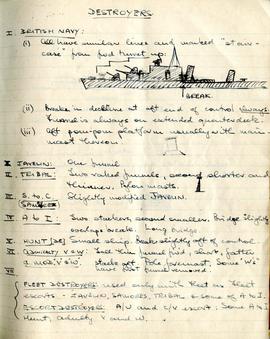 DESTROYERS
I. BRITISH NAVY:
(i) All have similar lines and marked "stair-
case" from fwd turret up:
BREAK
(ii) Break in deckline at aft end of control always
Funnel is always on extended quarterdeck.
(iii) Aft pom-pom platform usually with main
mast thereon.
X JAVELIN: One funnel
II. TRIBAL: Two raked funnels, second shorter and
thinner. Pylon masts.
III. S. to C. Slightly modified JAVELIN.
SAUMAREZ
IV A to I: Two stackers, second smaller. Bridge slightly
Long bridge
V. HUNT [DE] Small ship. Break slightly aft of control.
ADMIRALTY V & W: Tall thin funnel fwd, short, fatter
Some "W's"
have fwd funnel removed.
FLEET DESTROYERS: used only with Fleet as Fleet
escorts - JAVELIN, SAUMAREZ, TRIBAL & some of A to I.
ESCORT DESTROYERS: A/U and C/V escort: Some A to I
Hunt, Admiralty V and W.